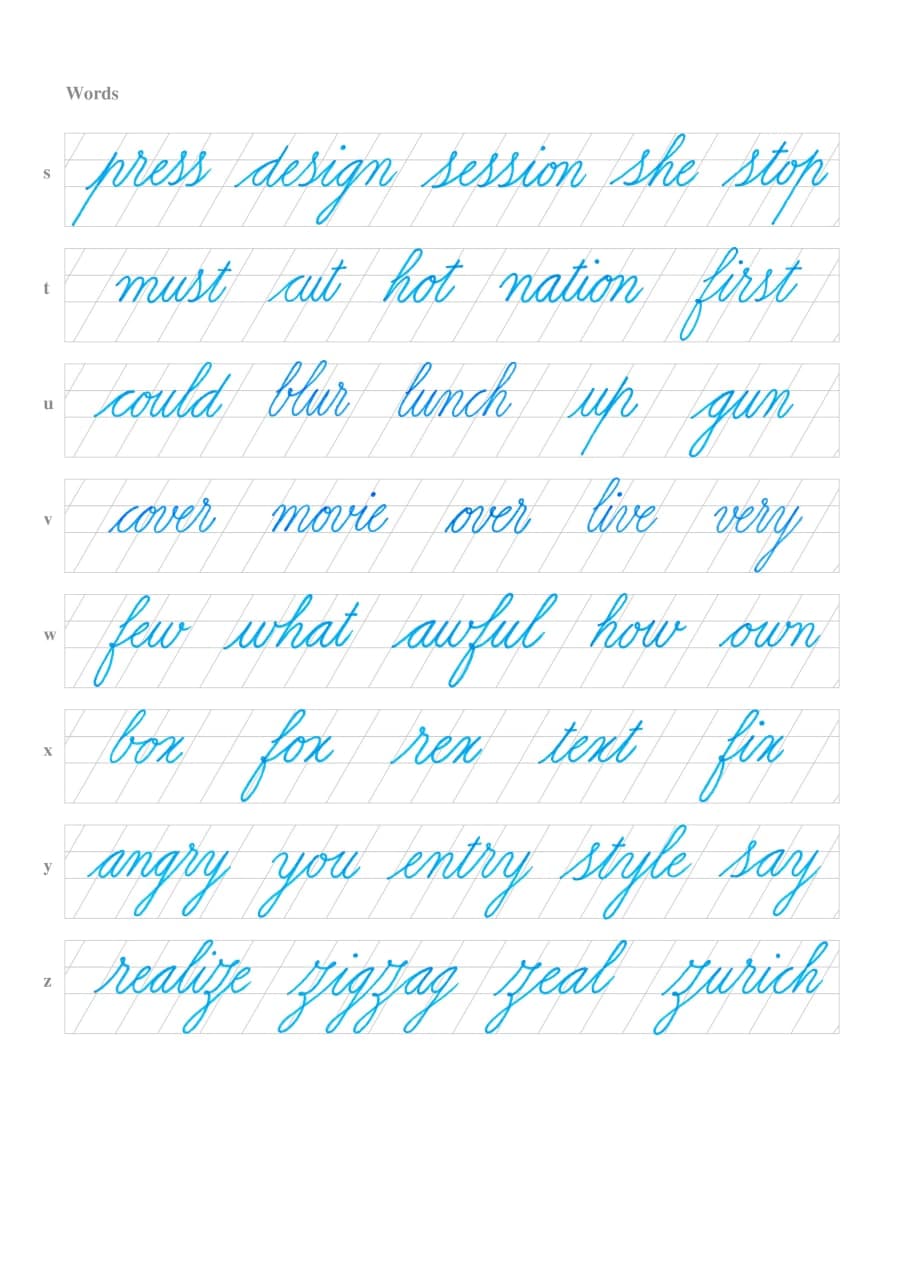 Words
s press design session she stop
t must cut hot nation first
u could blur lunch up gun
v cover movie over live very
w few what awful how own
x box fox rex text fix
y angry you entry style say
z realize zigzag zeal zurich